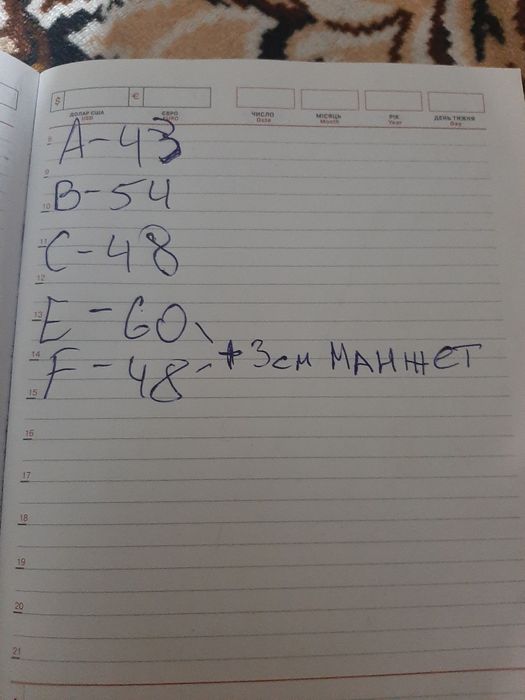 $ €
ДОЛАР США ЄВРО ЧИСЛО МІСЯЦЬ РІК ДЕНЬ ТИЖНЯ
USD EURO Date Month Year Day
8
A-43
9
10 B-54
11
C-48
12
13 E-60
14 +3см МАНЖЕТ
F-48
15
16
17
18
19
20
21